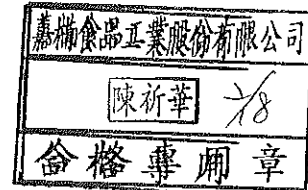 嘉楠食品工業股份有限公司
陳祈華
合格專用章